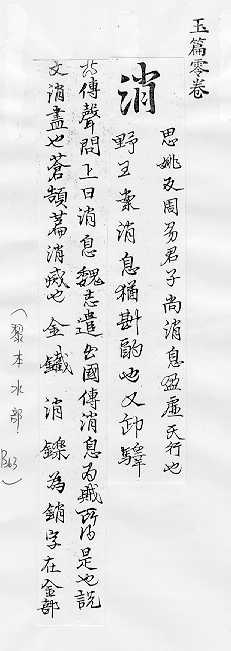 玉篇零卷
消
思姚反周易君子尚消息盈虛天行也
野王案消息猶斟酌也又卸驛
傳聲問上日消息魏志遣出國傳消息為賊所得是也說
文消盡也蒼頡篇消滅也金鐵消鑠為銷字在金部
(黎本水部.
P363)